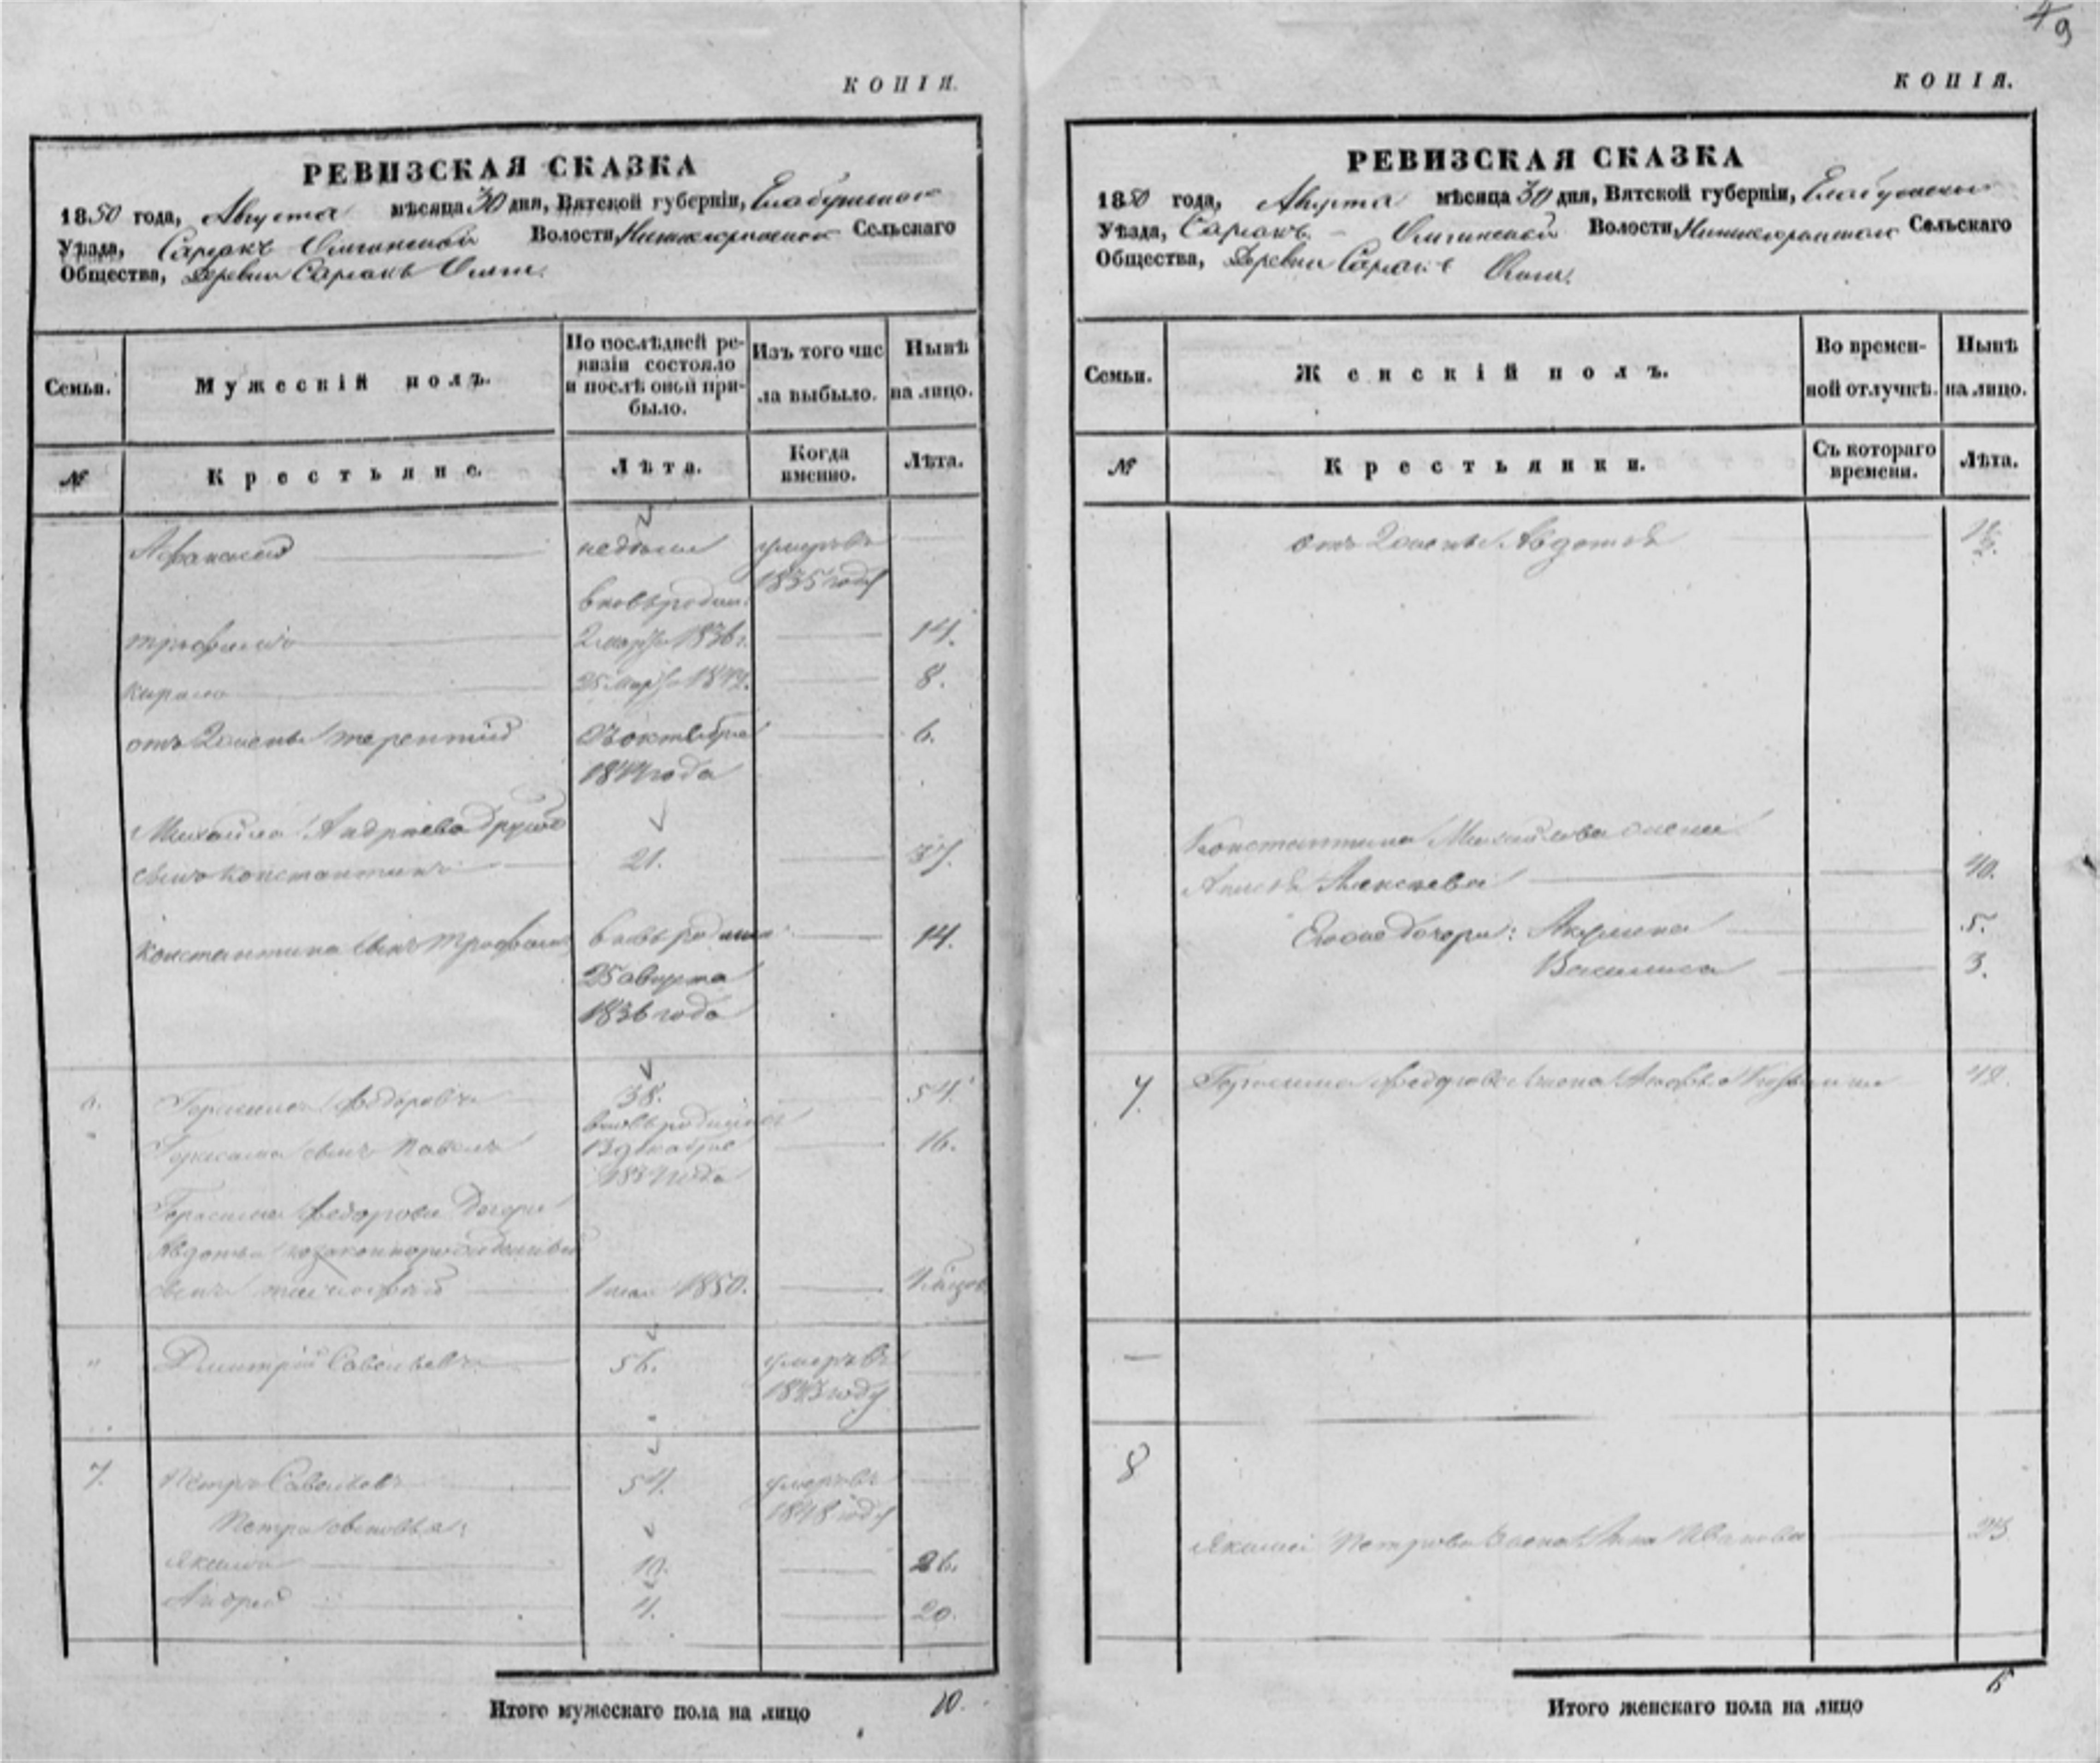 49
КОПІЯ.
РЕВИЗСКАЯ СКАЗКА
1850 года, Августа мѣсяца 30 дня, Вятской губерніи, Елабужскаго
Уѣзда, Сарсакъ Омгинской Волости, Сельскаго
Общества, Деревни Сарсакъ Омги.
Семьи.
Мужескій полъ.
По послѣдней ревизіи состояло и послѣ оной прибыло.
Изъ того числа выбыло.
Нынѣ на лицо.
№
Крестьяне.
Лѣта.
Когда именно.
Лѣта.
Афанасій умеръ въ
1835 году
вновьрожден.
Трофимъ 2 1836 г. 14.
25 8.
отъ 2 жены Терентій октября 6.
1844 года
Михайла Андреева другой
сынъ Константинъ 21. 37.
Константина сынъ Трофим вновь рожден 14.
25 августа
1836 года
6. Герасимъ Федоровъ 38. 54.
вновьрожденъ
Герасима сынъ Павелъ декабря 16.
1834 года
Герасима Федорова дочери
Авдотьи незаконнорожденный
сынъ Тимофей 1 мая 1850. 4 мѣсяц.
" Дмитрій Савельевъ 56. умеръ въ
1843 году
7. Петръ Савельевъ 54. умеръ въ
1848 году
Петра сыновья:
Якимъ 10. 26.
Андрей 4. 20.
Итого мужескаго пола на лицо 10.
КОПІЯ.
РЕВИЗСКАЯ СКАЗКА
1850 года, Августа мѣсяца 30 дня, Вятской губерніи, Елабужскаго
Уѣзда, Сарсакъ - Омгинской Волости, Сельскаго
Общества, Деревни Сарсакъ Омги.
Семьи.
Женскій полъ.
Во временной отлучкѣ.
Нынѣ на лицо.
№
Крестьянки.
Съ котораго времени.
Лѣта.
отъ 2 жены Авдотья
Константина Михайлова жена
Алексѣева 40.
Его же дочери: Акулина 5.
Василиса 3.
7. Герасима Федорова жена 49.
—
8
Якима Петрова жена Анна Иванова 23
Итого женскаго пола на лицо 6